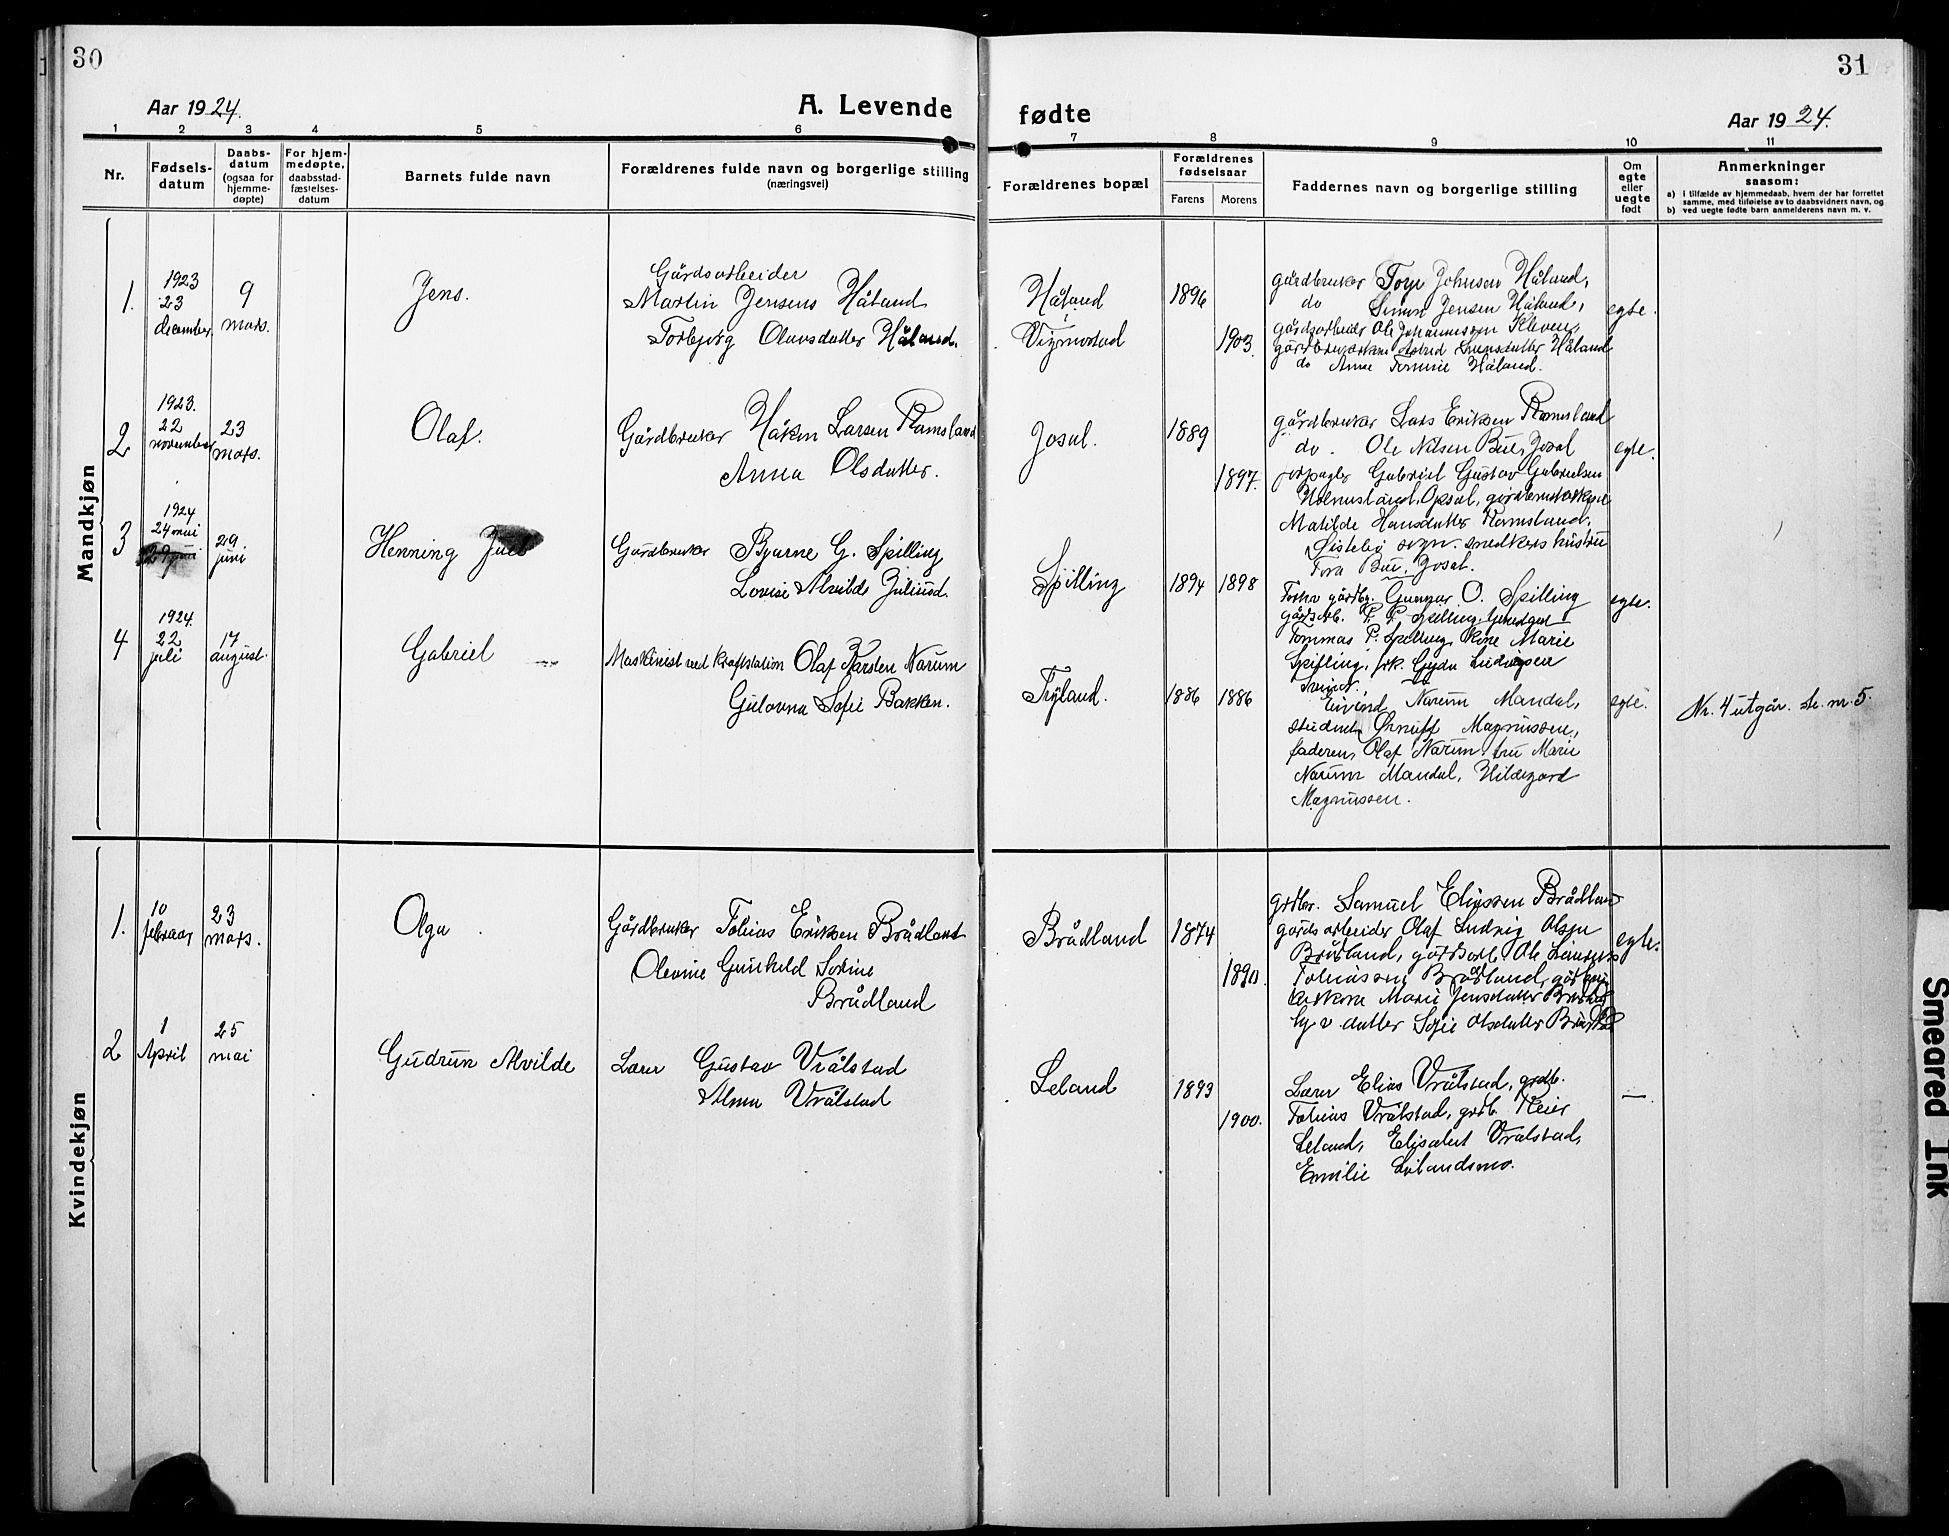 30
Aar 1924.
A. Levende
1 2 3 4 5 6
Nr.
Fødsels-
datum
Daabs-
datum
(ogsaa for
hjemme-
døpte)
For hjem-
medøpte,
daabsstad-
fæstelses-
datum
Barnets fulde navn
Forældrenes fulde navn og borgerlige stilling
(næringsvei)
Mandkjøn
1.
1923
23
december
9
mars.
Jens.
Gårdsarbeider
Martin Jensens Håland
Torbjørg Olavsdatter Håland.
2
1923.
22
november
23
mars.
Olaf.
Gårdbruker Håken Larsen Ramsland
Anna Olsdatter.
3
1924
24 mai
29 juni
29
juni
Henning Juel
Gårdbruker Bjarne G. Spilling
Lovise Alvilde Juliusd.
4
1924.
22
juli
17
august.
Gabriel
Maskinist ved kraftstation Olaf Karsten Narum
Gulovna Sofie Bakken.
Kvindekjøn
1.
10
februar
23
mars.
Olga
Gårdbruker Tobias Eriksen Brådland
Olevine Gunhild Sorine
Brådland
2
1
April
25
mai
Gudrun Alvilde
Lærer Gustav Vrålstad
Alma Vrålstad
31
fødte
Aar 1924.
7 8 9 10 11
Forældrenes bopæl
Forældrenes
fødselsaar
Farens Morens
Faddernes navn og borgerlige stilling
Om
egte
eller
uegte
født
Anmerkninger
saasom:
a) i tilfælde av hjemmedaab, hvem der har forrettet
samme, med tilføielse av to daabsvidners navn, og
b) ved uegte fødte barn anmelderens navn m. v.
Håland
Vigmostad
1896
1903.
gårdbruker Torje Johnsen Håland,
do Simon Jensen Håland,
gårdsarbeider Ole Johannesen Kleven,
Astrid Håland
do Anna Tomine Håland.
egte.
Josal.
1889
1897.
gårdbruker Lars Eriksen Ramsland
do. Ole Nilsen Bue, Josal
forpagter Gabriel Gustav Gabrielsen
Holmesland, Opsal,
Matilde Hansdatter Ramsland,
Øislebø sogn. snedkers hustru
Tora Bue, Josal.
egte.
Spilling
1894
1898
gårdbr. Gunnar O. Spilling
gårdsarb. P. P. Spilling,
Tommas P. Spilling, Marie
Spilling, frk. Gyda Ludvigsen
egte.
Tryland.
1886
1886
Eivind Narum Mandal,
student Magnussen,
faderen, Olaf Narum, fru Marie
Narum Mandal, Hildegard
Magnussen.
egte.
Nr. 4 utgår. se nr. 5.
Brådland
1874
1890.
grdbr. Samuel Eliassen Brådland
gårdsarbeider Olaf Ludvig Olsen
Brådland, gårdsarb Ole
Tobiassen Brådland,
Marie Jensdatter
datter Sofie Olsdatter
egte.
Leland
1893
1900.
Lærer Elias Vrålstad, grdb.
Tobias Vrålstad, grdb. Reier
Leland, Elisabet Vrålstad,
Emilie
—
Smeared Ink